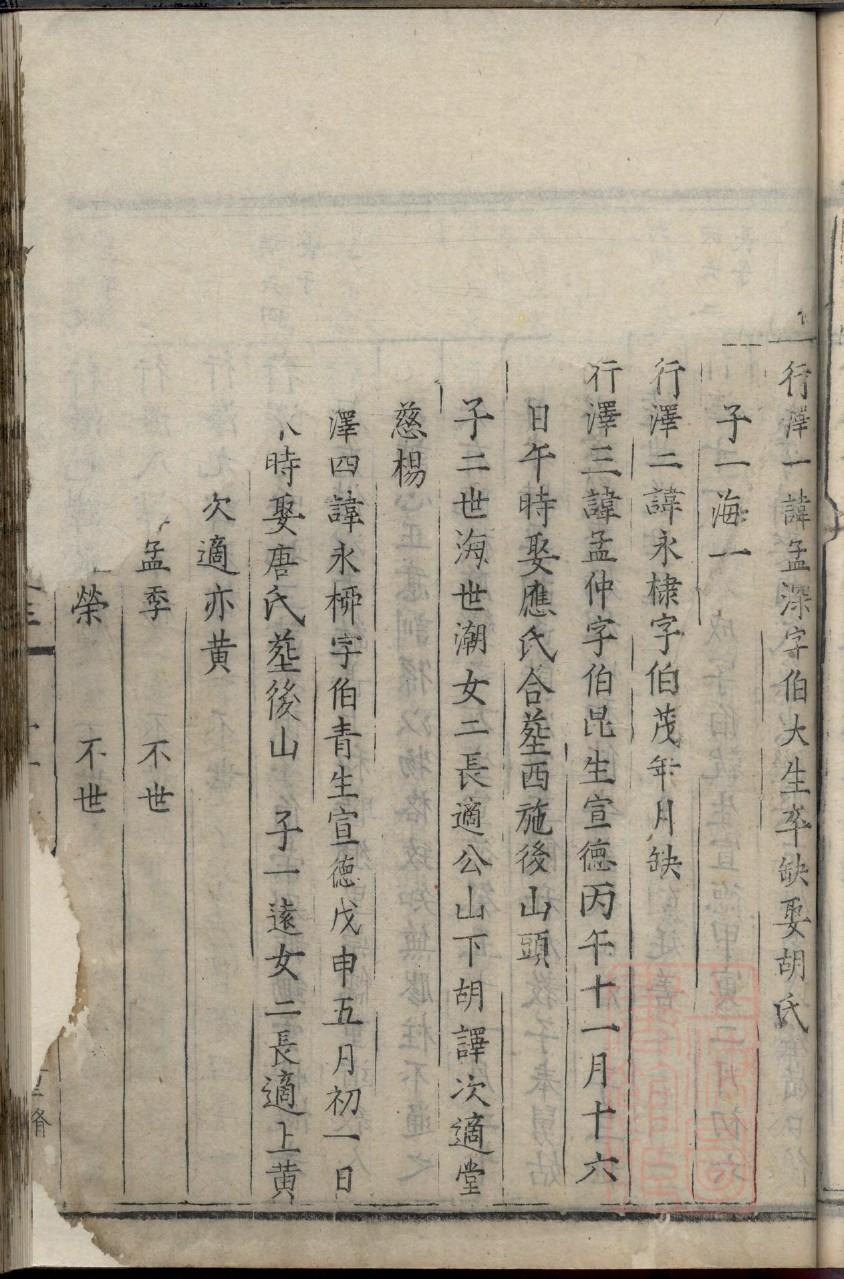 行澤一諱孟深字伯大生卒缺娶胡氏
子一海一
行澤二諱永棣字伯茂年月缺
行澤三諱孟仲字伯昆生宣德丙午十一月十六
日午時娶應氏合塟西施後山頭
子二世海世潮女二長適公山下胡譯次適堂
慈楊
澤四諱永栁字伯青生宣德戊申五月初一日
時娶唐氏塟後山 子一遠女二長適上黄
次適亦黄
孟季 不世
榮 不世